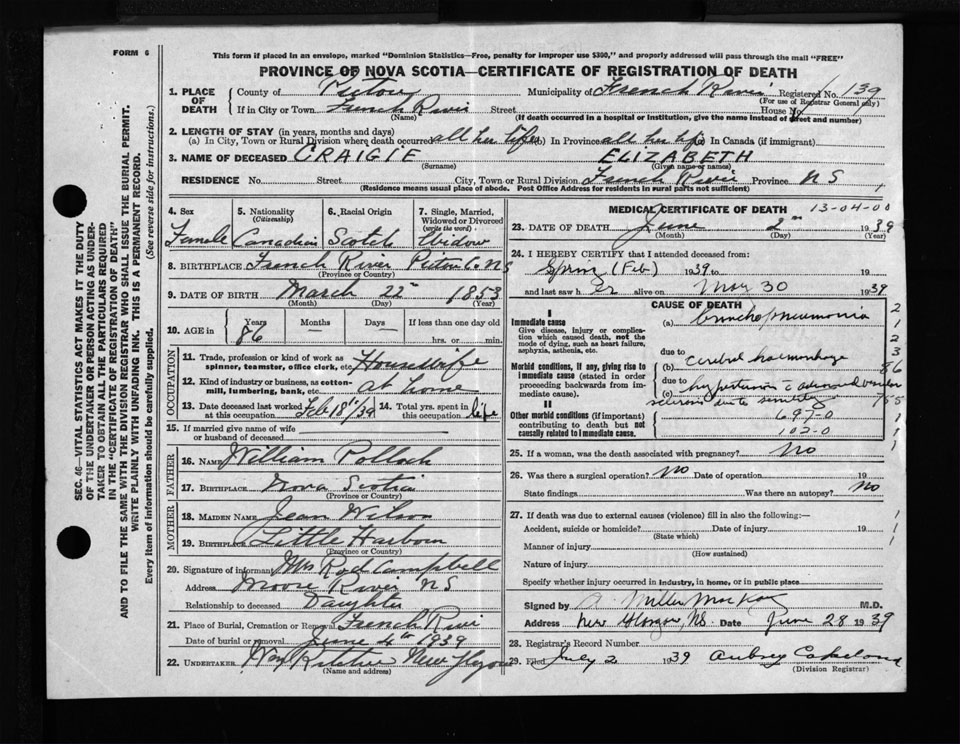 FORM 6
This form if placed in an envelope, marked "Dominion Statistics—Free, penalty for improper use $300," and properly addressed will pass through the mail "FREE"
PROVINCE OF NOVA SCOTIA—CERTIFICATE OF REGISTRATION OF DEATH
SEC. 46—VITAL STATISTICS ACT MAKES IT THE DUTY
OF THE UNDERTAKER OR PERSON ACTING AS UNDER-
TAKER TO OBTAIN ALL THE PARTICULARS REQUIRED
IN THE "CERTIFICATE OF REGISTRATION OF DEATH"
AND TO FILE THE SAME WITH THE DIVISION REGISTRAR WHO SHALL ISSUE THE BURIAL PERMIT.
WRITE PLAINLY WITH UNFADING INK. THIS IS A PERMANENT RECORD.
Every item of information should be carefully supplied. (See reverse side for instructions.)
1. PLACE OF DEATH
County of Pictou Municipality of French River Registered No. 139
(For use of Registrar General only)
If in City or Town French River Street House No.
(Name) (If death occurred in a hospital or institution, give the name instead of street and number)
2. LENGTH OF STAY (in years, months and days)
(a) In City, Town or Rural Division where death occurred all her life (b) In Province all her life (c) In Canada (if immigrant)
3. NAME OF DECEASED CRAIGIE ELIZABETH
(Surname) (Given name or names)
RESIDENCE No. Street City, Town or Rural Division French River Province NS
(Residence means usual place of abode. Post Office Address for residents in rural parts not sufficient)
4. Sex 5. Nationality (Citizenship) 6. Racial Origin 7. Single, Married, Widowed or Divorced (write the word)
Female Canadian Scotch Widow
8. BIRTHPLACE French River Pictou Co NS
(Province or Country)
9. DATE OF BIRTH March 22nd 1853
(Month) (Day) (Year)
10. AGE in Years Months Days If less than one day old
86 — — hrs. or min.
OCCUPATION
11. Trade, profession or kind of work as spinner, teamster, office clerk, etc. Housewife
12. Kind of industry or business, as cotton-mill, lumbering, bank, etc. at home
13. Date deceased last worked at this occupation Feb 18th/39 14. Total yrs. spent in this occupation life
15. If married give name of wife or husband of deceased
FATHER
16. Name William Polloch
17. Birthplace Nova Scotia
(Province or Country)
MOTHER
18. Maiden Name Jean Wilson
19. Birthplace Little Harbour
(Province or Country)
20. Signature of informant Mrs Rod Campbell
Address Moose River NS
Relationship to deceased Daughter
21. Place of Burial, Cremation or Removal French River
Date of burial or removal June 4th 1939
22. UNDERTAKER New Glasgow
(Name and address)
MEDICAL CERTIFICATE OF DEATH 13-04-00
23. DATE OF DEATH June 2nd 1939
(Month) (Day) (Year)
24. I HEREBY CERTIFY that I attended deceased from
(Feb) 1939 to 19
and last saw her alive on May 30 1939
CAUSE OF DEATH
I
Immediate cause
Give disease, injury or complication which caused death, not the mode of dying, such as heart failure, asphyxia, asthenia, etc.
(a) bronchopneumonia
due to
Morbid conditions, if any, giving rise to immediate cause (stated in order proceeding backwards from immediate cause).
(b) cerebral haemorrhage
due to
(c) hypertension
II
Other morbid conditions (if important) contributing to death but not causally related to immediate cause.
697-0
102-0
25. If a woman, was the death associated with pregnancy? No
26. Was there a surgical operation? No Date of operation 19
State findings Was there an autopsy? No
27. If death was due to external causes (violence) fill in also the following:—
Accident, suicide or homicide? Date of injury 19
(State which)
Manner of injury
(How sustained)
Nature of injury
Specify whether injury occurred in industry, in home, or in public place
Signed by M.D.
Address New Glasgow, NS. Date June 28 1939
28. Registrar's Record Number
29. Filed July 2 1939 Aubrey Copeland
(Division Registrar)